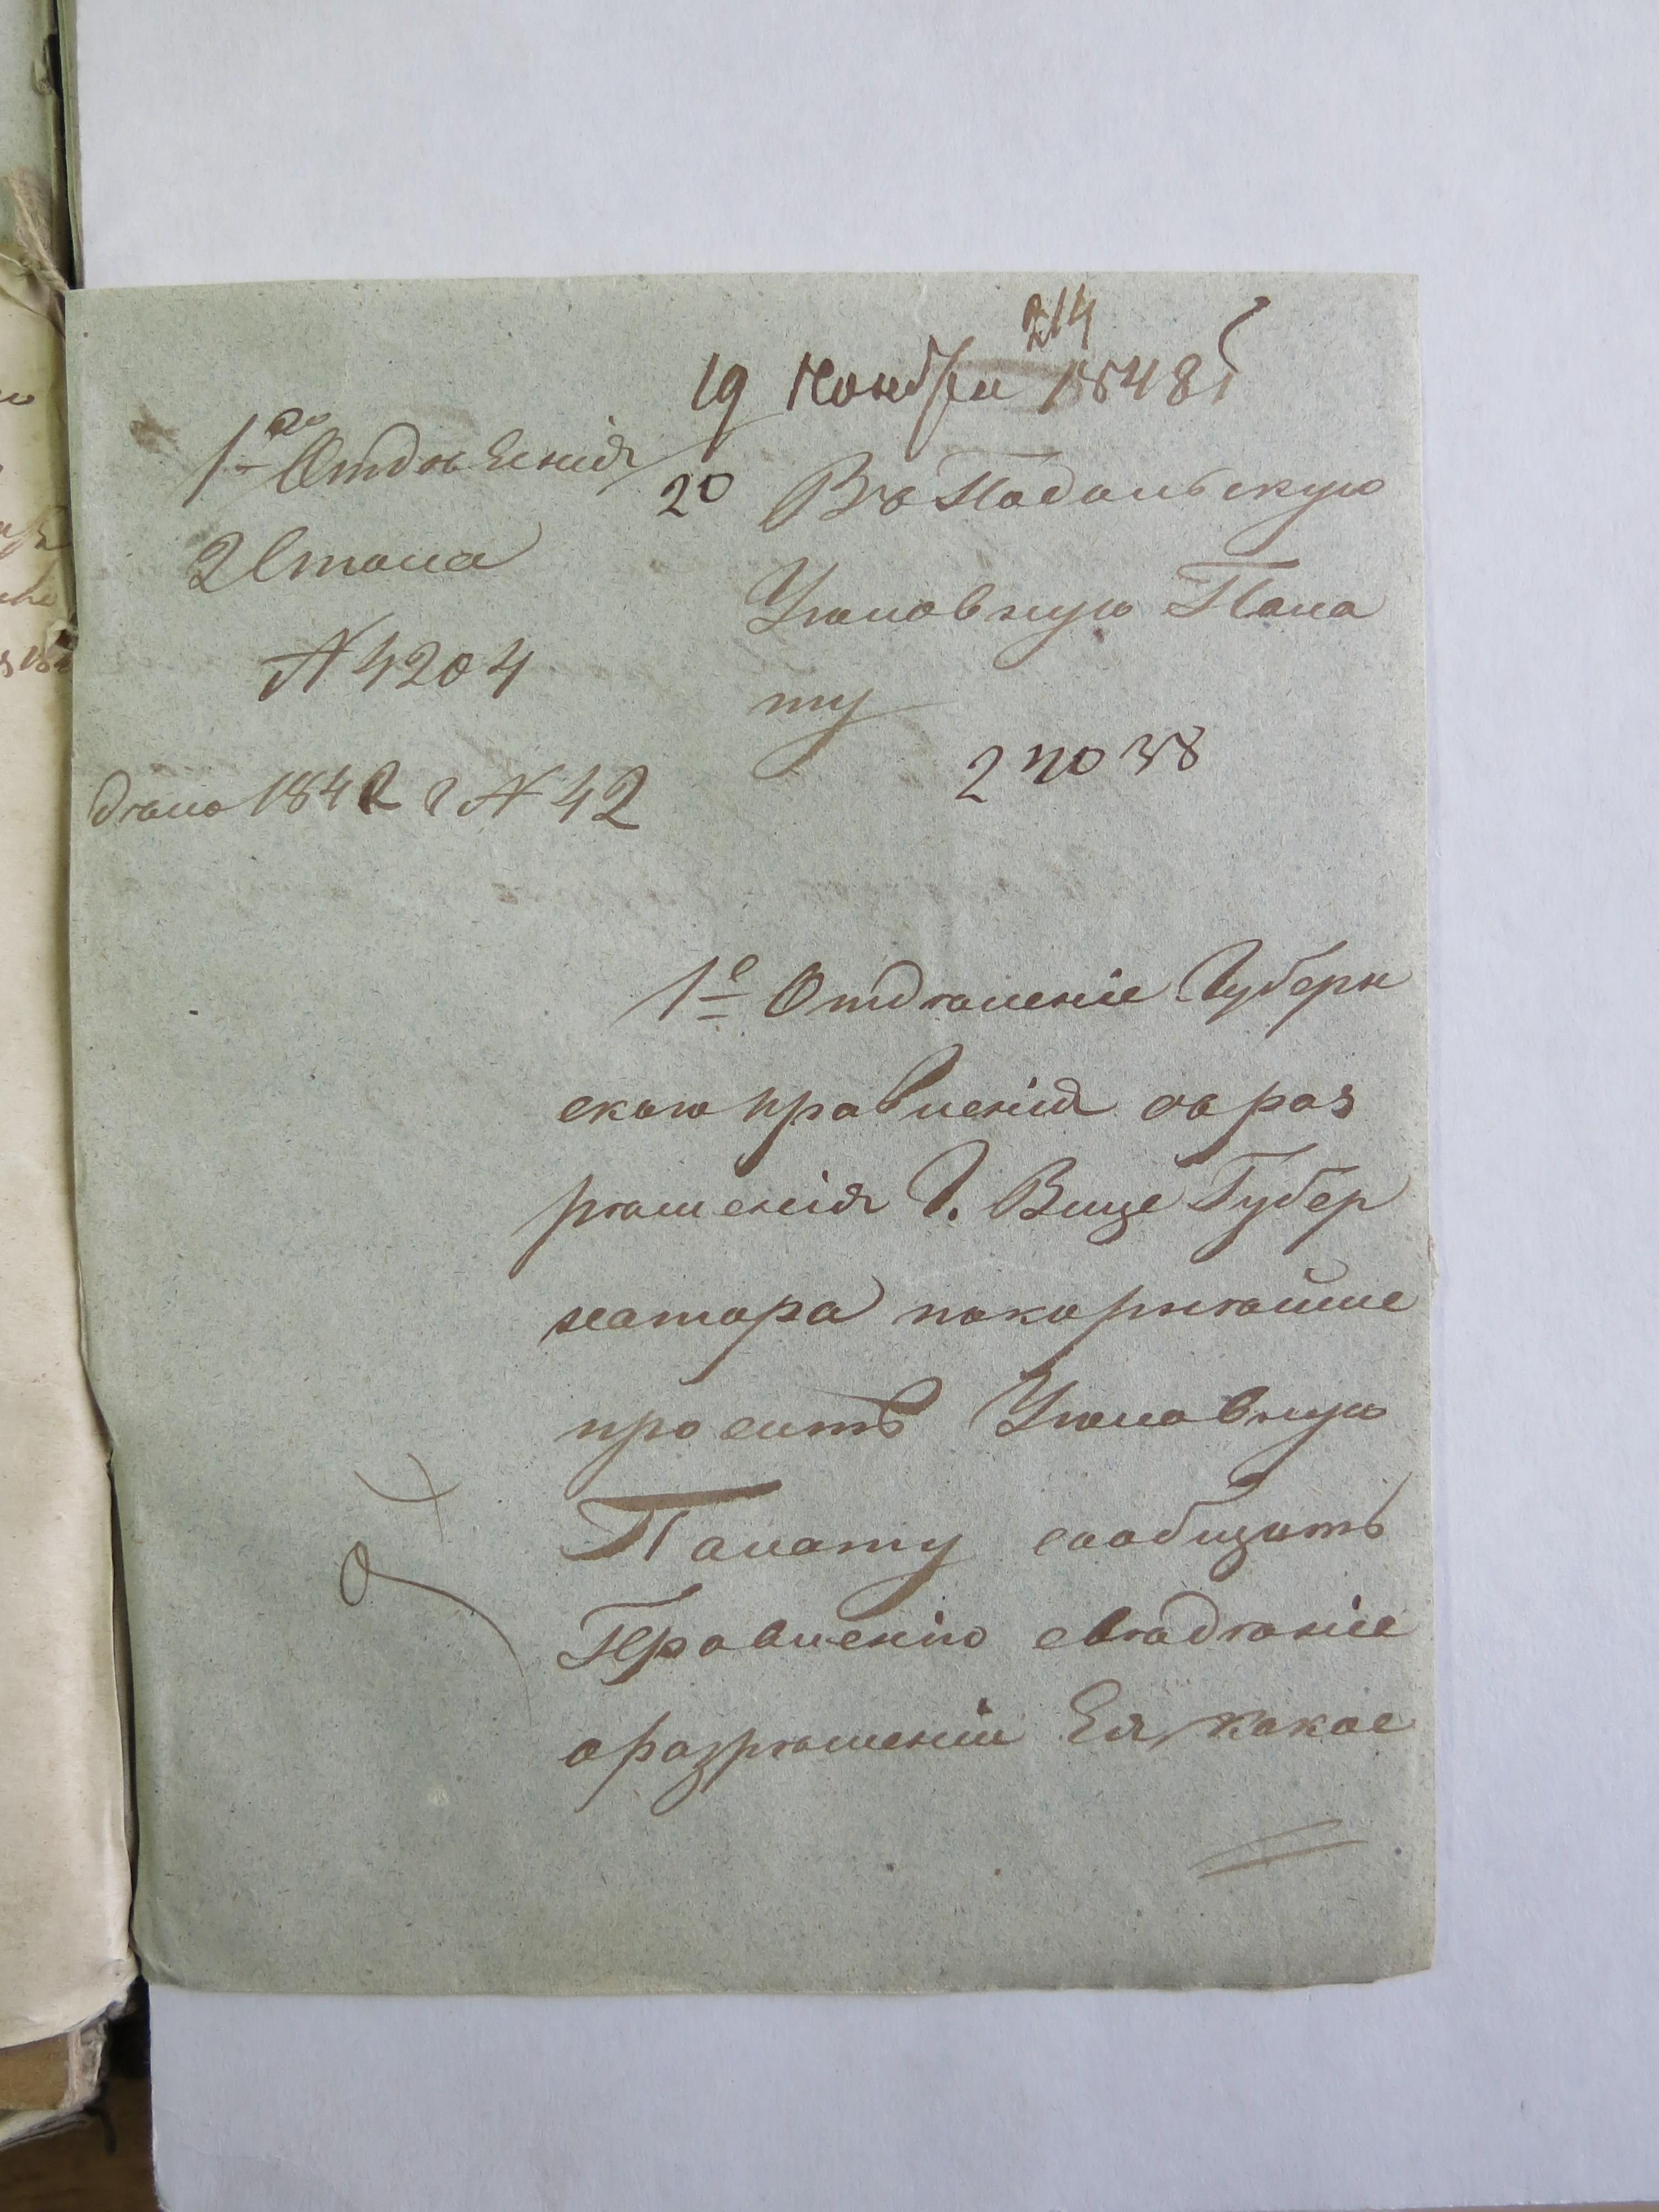 214
19 Ноября 1848 г
1го Отдѣленія
2 Стола
№ 4204
дѣло 1842 г № 42
20 Въ Подольскую
Уголовную Пала
ту
2 ПО 38
1е Отдѣленіе Губерн
скаго правленія съ раз
рѣшенія Г. Вице Губер
натора покорнѣйше
проситъ Уголовную
Палату сообщить
Правленію свѣдѣніе
о разрѣшеніи Ея какое